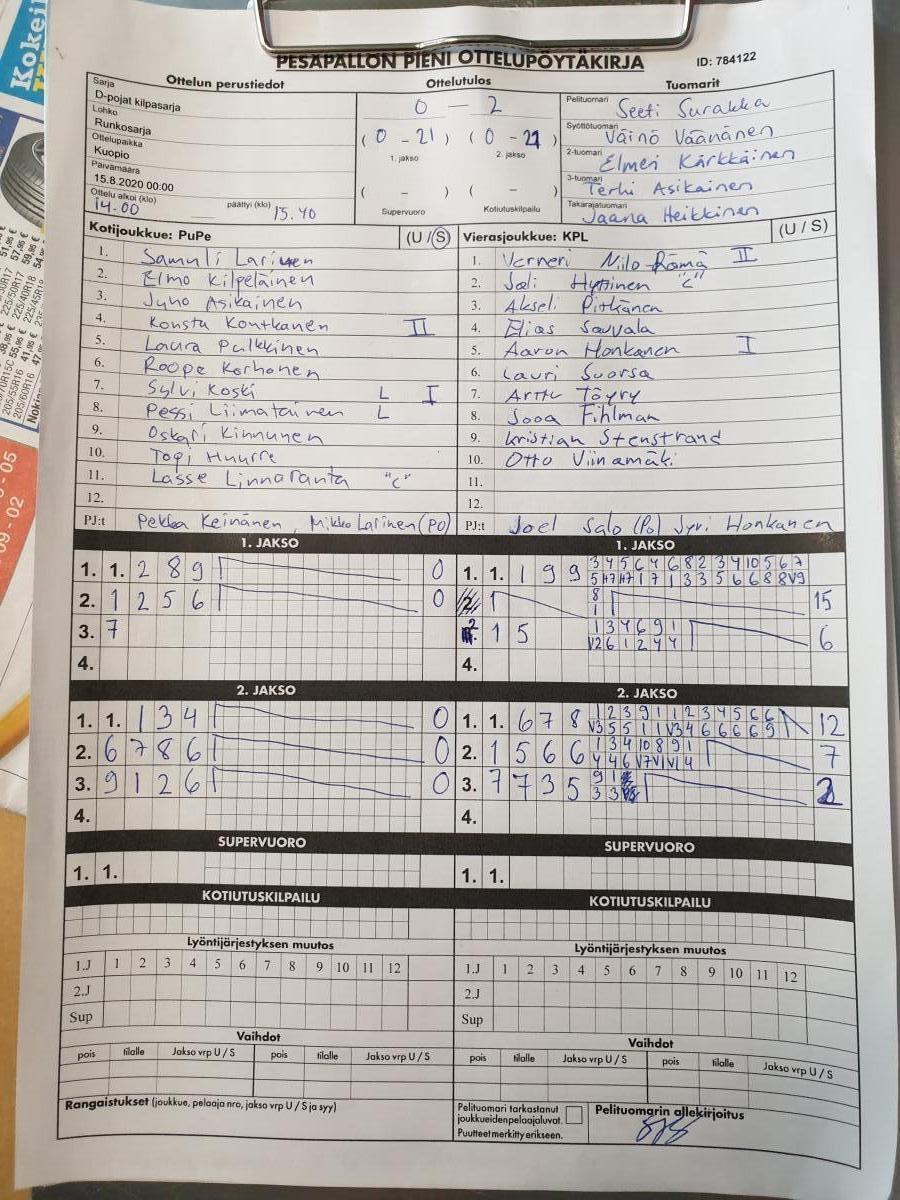 Kokeil
PESÄPALLON PIENI OTTELUPÖYTÄKIRJA
ID: 784122
Ottelun perustiedot
Sarja
D-pojat kilpasarja
Lohko
Runkosarja
Ottelupaikka
Kuopio
Päivämäärä
15.8.2020 00:00
Ottelu alkoi (klo) 14.00 päättyi (klo) 15.40
Ottelutulos
0 – 2
(0 - 21) (0 - 21)
1. jakso 2. jakso
( - ) ( - )
Supervuoro Kotiutuskilpailu
Tuomarit
Pelituomari Seeti Surakka
Syöttötuomari Väinö Väänänen
2-tuomari Elmeri Kärkkäinen
3-tuomari Terhi Asikainen
Takarajatuomari Jaana Heikkinen
Kotijoukkue: PuPe (U / S)
1. Samuli Larinen
2. Elmo Kilpeläinen
3. Juho Asikainen
4. Konsta Kontkanen II
5. Laura Pulkkinen
6. Roope Korhonen
7. Sylvi Koski L I
8. Pessi Liimatainen L
9. Oskari Kinnunen
10. Topi Huurre
11. Lasse Linnaranta "C"
12.
PJ:t Pekka Keinänen, Mikko Larinen (PO)
Vierasjoukkue: KPL (U / S)
1. Verneri Niilo Rämä II
2. Joli Hyttinen "C"
3. Akseli Pitkänen
4. Elias Sauvala
5. Aaron Honkanen I
6. Lauri Suorsa
7. Arttu Töyry
8. Jooa Fihlman
9. Kristian Stenstrand
10. Otto Viinamäki
11.
12.
PJ:t Joel Salo (PO) Jyri Honkanen
1. JAKSO
1. 1. 2 8 9 0
2. 1 2 5 6 0
3. 7
4.
1. JAKSO
1. 1. 1 9 9 3 4 5 6 4 6 8 2 3 4 10 5 6 7
15
1
8
1
2 1 5 1 3 4 6 9 1 6
V2 6 1 2 4 4
4.
2. JAKSO
1. 1. 1 3 4 0
2. 6 7 8 6 0
3. 9 1 2 6 0
4.
2. JAKSO
1. 1. 6 7 8 1 2 3 9 1 1 2 3 4 5 6 6 12
V3 5 5 1 1 V3 4 6 6 6 6 9
2. 1 5 6 6 1 3 4 10 8 9 1 7
4 4 6 V7 V1 V1 4
3. 7 7 3 5 9 1 2
3 3
4.
SUPERVUORO
1. 1.
SUPERVUORO
1. 1.
KOTIUTUSKILPAILU
KOTIUTUSKILPAILU
Lyöntijärjestyksen muutos
1.J 1 2 3 4 5 6 7 8 9 10 11 12
2.J
Sup
Lyöntijärjestyksen muutos
1.J 1 2 3 4 5 6 7 8 9 10 11 12
2.J
Sup
Vaihdot
pois tilalle Jakso vrp U / S pois tilalle Jakso vrp U / S
Vaihdot
pois tilalle Jakso vrp U / S pois tilalle Jakso vrp U / S
Rangaistukset (joukkue, pelaaja nro, jakso vrp U / S ja syy)
Pelituomari tarkastanut
joukkueiden pelaajaluvat.
Puutteet merkitty erikseen.
Pelituomarin allekirjoitus